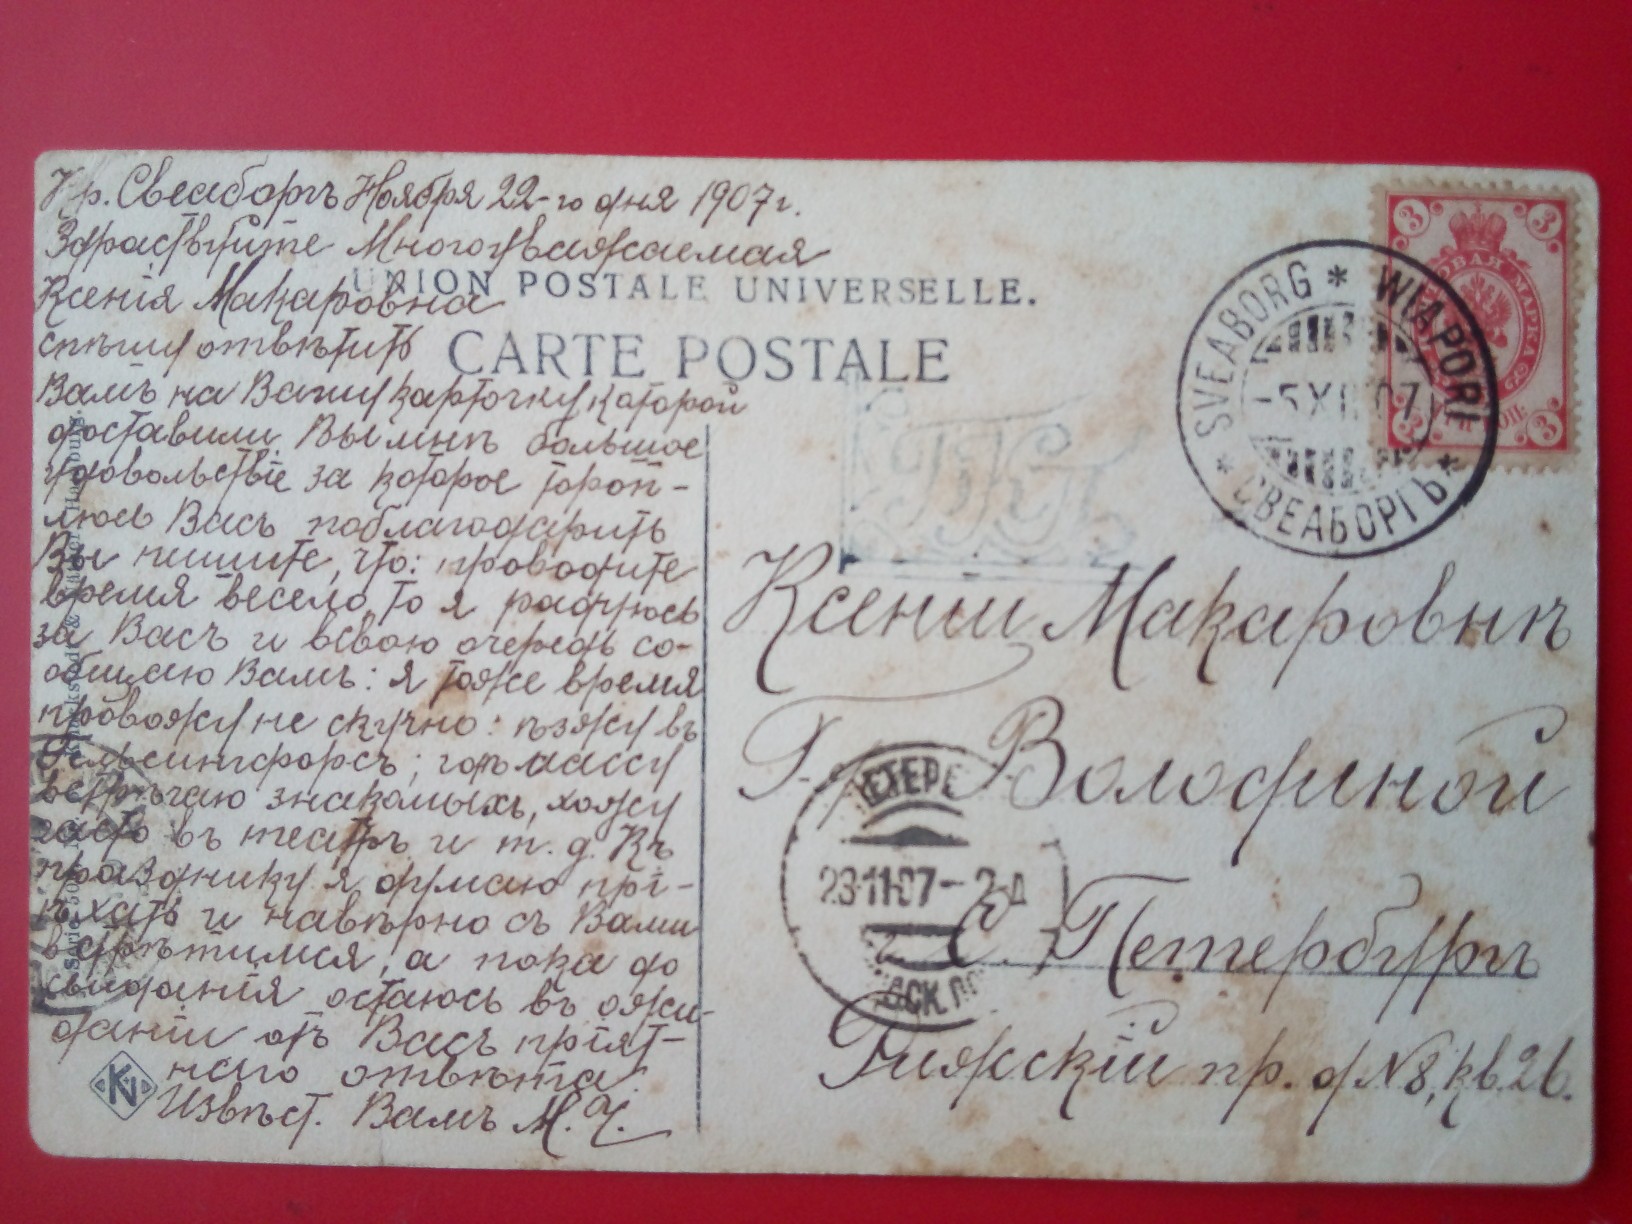 Кр. Свеаборгъ Ноября 22-го дня 1907 г.
Здраствуйте Многоуважаемая
Ксенія Макаровна
спѣшу отвѣтить
Вамъ на Вашу карточку которой
доставили Вы мнѣ большое
удовольствіе за которое тороп-
люсь Васъ поблагодарить
Вы пишите, что: проводите
время весело, то я радуюсь
за Васъ и всвою очередь со-
общаю Вамъ: я тоже время
провожу не скучно: ѣзжу въ
Гельсингфорсъ; гдѣ массу
встрѣчаю знакомыхъ, хожу
часто въ театръ и т. д. Къ
празднику я думаю прі-
ѣхать и навѣрно съ Вами
встрѣтимся, а пока до
свиданія остаюсь въ ожи-
даніи отъ Васъ пріят-
наго отвѣта.
Извѣст. Вамъ М. Ч.
UNION POSTALE UNIVERSELLE.
CARTE POSTALE
SVEABORG * WIAPORI
-5 XII 07
* СВЕАБОРГЪ *
3 3
МАРКА
3 3
Ксеніи Макаровнѣ
Г-жѣ Володиной
С. Петербургъ
Рижскій пр. д № 8, кв. 26.
23·11·07-2
KN